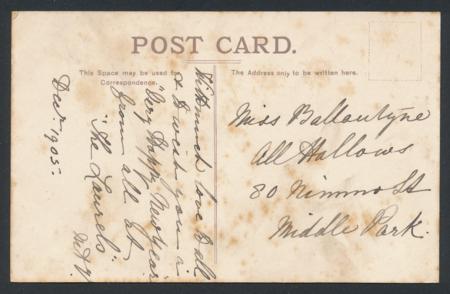 POST CARD.
This Space may be used for
Correspondence.
The Address only to be written here.
With much love Dall
& I wish you a
"Very Happy New Year"
from all at
"The Laurels"
Dec. 1905.
Miss Ballantyne
All Hallows
80 Nimmo St
Middle Park.